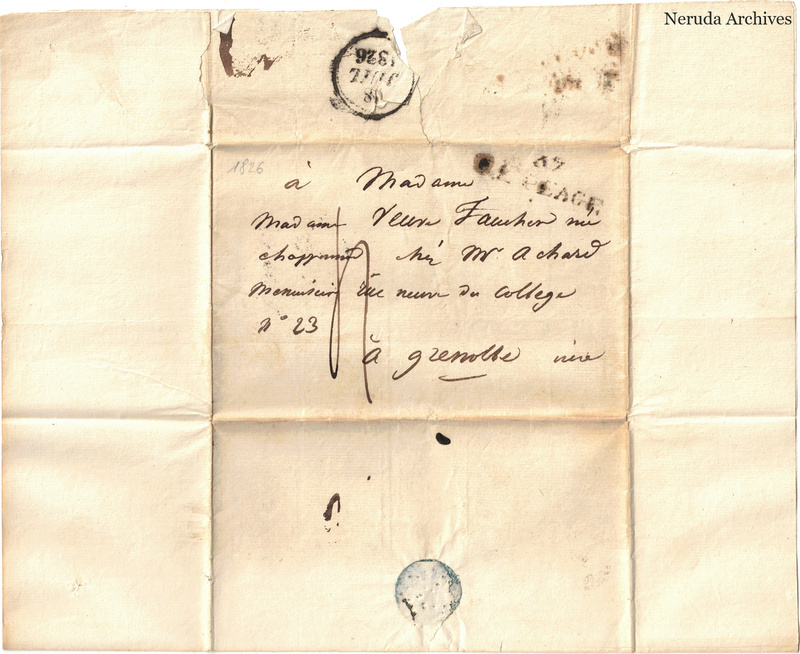 Neruda Archives
08
JUIL
1826
1826
37
PEAGE
à Madame
Madame Veuve Faucher née
chez Mr Achard
Menuisier Rue neuve du College
n° 23
à grenoble isère